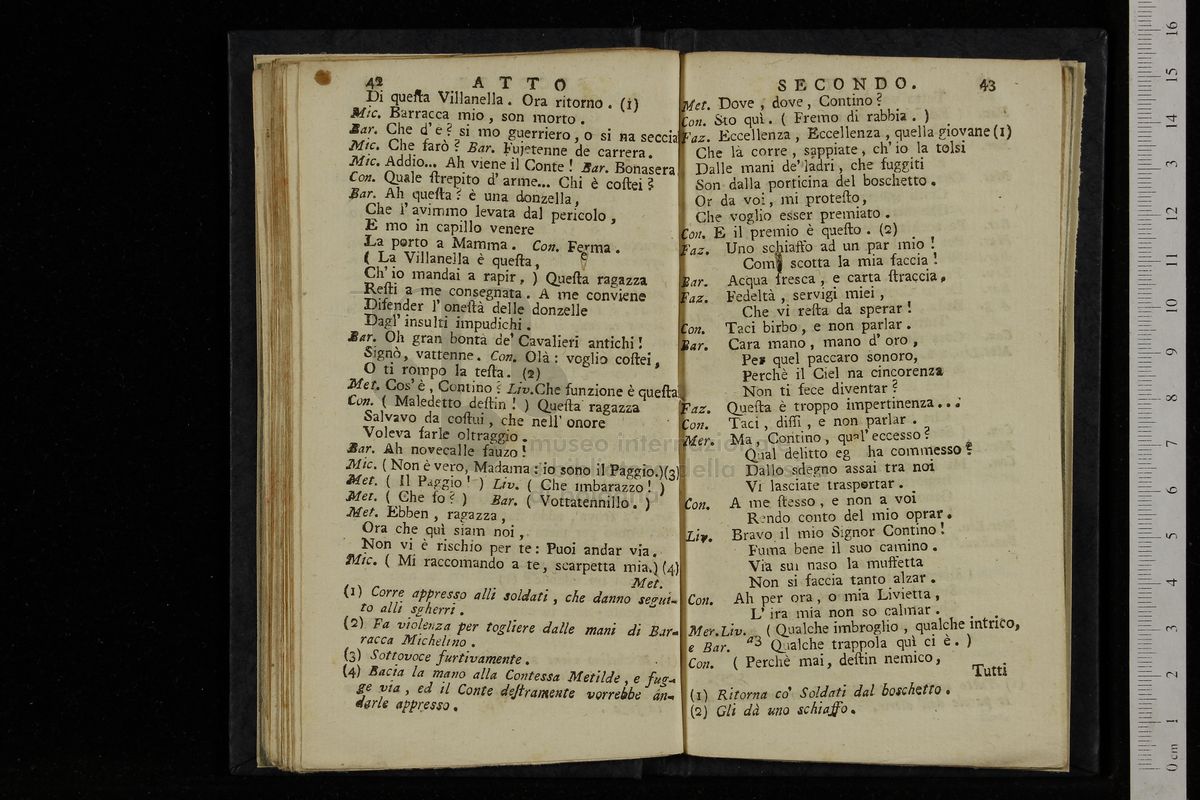 42 ATTO
Di questa Villanella. Ora ritorno. (1)
Mic. Barracca mio, son morto.
Bar. Che d'è? si mo guerriero, o si na seccia
Mic. Che farò? Bar. Fujetenne de carrera.
Mic. Addio... Ah viene il Conte! Bar. Bonasera
Con. Quale strepito d'arme... Chi è costei?
Bar. Ah questa? è una donzella,
Che l'avimmo levata dal pericolo,
E mo in capillo venere
La porto a Mamma. Con. Ferma.
( La Villanella è questa,
Ch'io mandai a rapir, ) Questa ragazza
Resti a me consegnata. A me conviene
Difender l'onestà delle donzelle
Dagl'insulti impudichi.
Bar. Oh gran bontà de' Cavalieri antichi!
Signò, vattenne. Con. Olà: voglio costei,
O ti rompo la testa. (2)
Met. Cos'è, Contino? Liv. Che funzione è questa
Con. ( Maledetto destin! ) Questa ragazza
Salvavo da costui, che nell'onore
Voleva farle oltraggio.
Bar. Ah novecalle fauzo!
Mic. ( Non è vero, Madama: io sono il Paggio.)(3)
Met. ( Il Paggio! ) Liv. ( Che imbarazzo! )
Met. ( Che fo? ) Bar. ( Vottatennillo. )
Met. Ebben, ragazza,
Ora che quì siam noi,
Non vi è rischio per te: Puoi andar via.
Mic. ( Mi raccomando a te, scarpetta mia.) (4)
Met.
(1) Corre appresso alli soldati, che danno segui-
to alli sgherri.
(2) Fa violenza per togliere dalle mani di Bar-
racca Michelino.
(3) Sottovoce furtivamente.
(4) Bacia la mano alla Contessa Metilde, e fug-
ge via, ed il Conte destramente vorrebbe an-
darle appresso.
SECONDO. 43
Met. Dove, dove, Contino?
Con. Sto quì. ( Fremo di rabbia. )
Faz. Eccellenza, Eccellenza, quella giovane (1)
Che là corre, sappiate, ch'io la tolsi
Dalle mani de' ladri, che fuggiti
Son dalla porticina del boschetto.
Or da voi, mi protesto,
Che voglio esser premiato.
Con. E il premio è questo. (2)
Faz. Uno schiaffo ad un par mio!
Come scotta la mia faccia!
Bar. Acqua fresca, e carta straccia.
Faz. Fedeltà, servigi miei,
Che vi resta da sperar!
Con. Taci birbo, e non parlar.
Bar. Cara mano, mano d'oro,
Per quel paccaro sonoro,
Perchè il Ciel na cincorenza
Non ti fece diventar?
Faz. Questa è troppo impertinenza...
Con. Taci, dissi, e non parlar.
Mer. Ma, Contino, qual'eccesso?
Qual delitto eg ha commesso?
Dallo sdegno assai tra noi
Vi lasciate trasportar.
Con. A me stesso, e non a voi
Rendo conto del mio oprar.
Liv. Bravo il mio Signor Contino!
Fuma bene il suo camino.
Via sul naso la muffetta
Non si faccia tanto alzar.
Con. Ah per ora, o mia Livietta,
L'ira mia non so calmar.
Mer.Liv. ( Qualche imbroglio, qualche intrico,
e Bar. a3 Qualche trappola quì ci è. )
Con. ( Perchè mai, destin nemico,
Tutti
(1) Ritorna co' Soldati dal boschetto.
(2) Gli dà uno schiaffo.